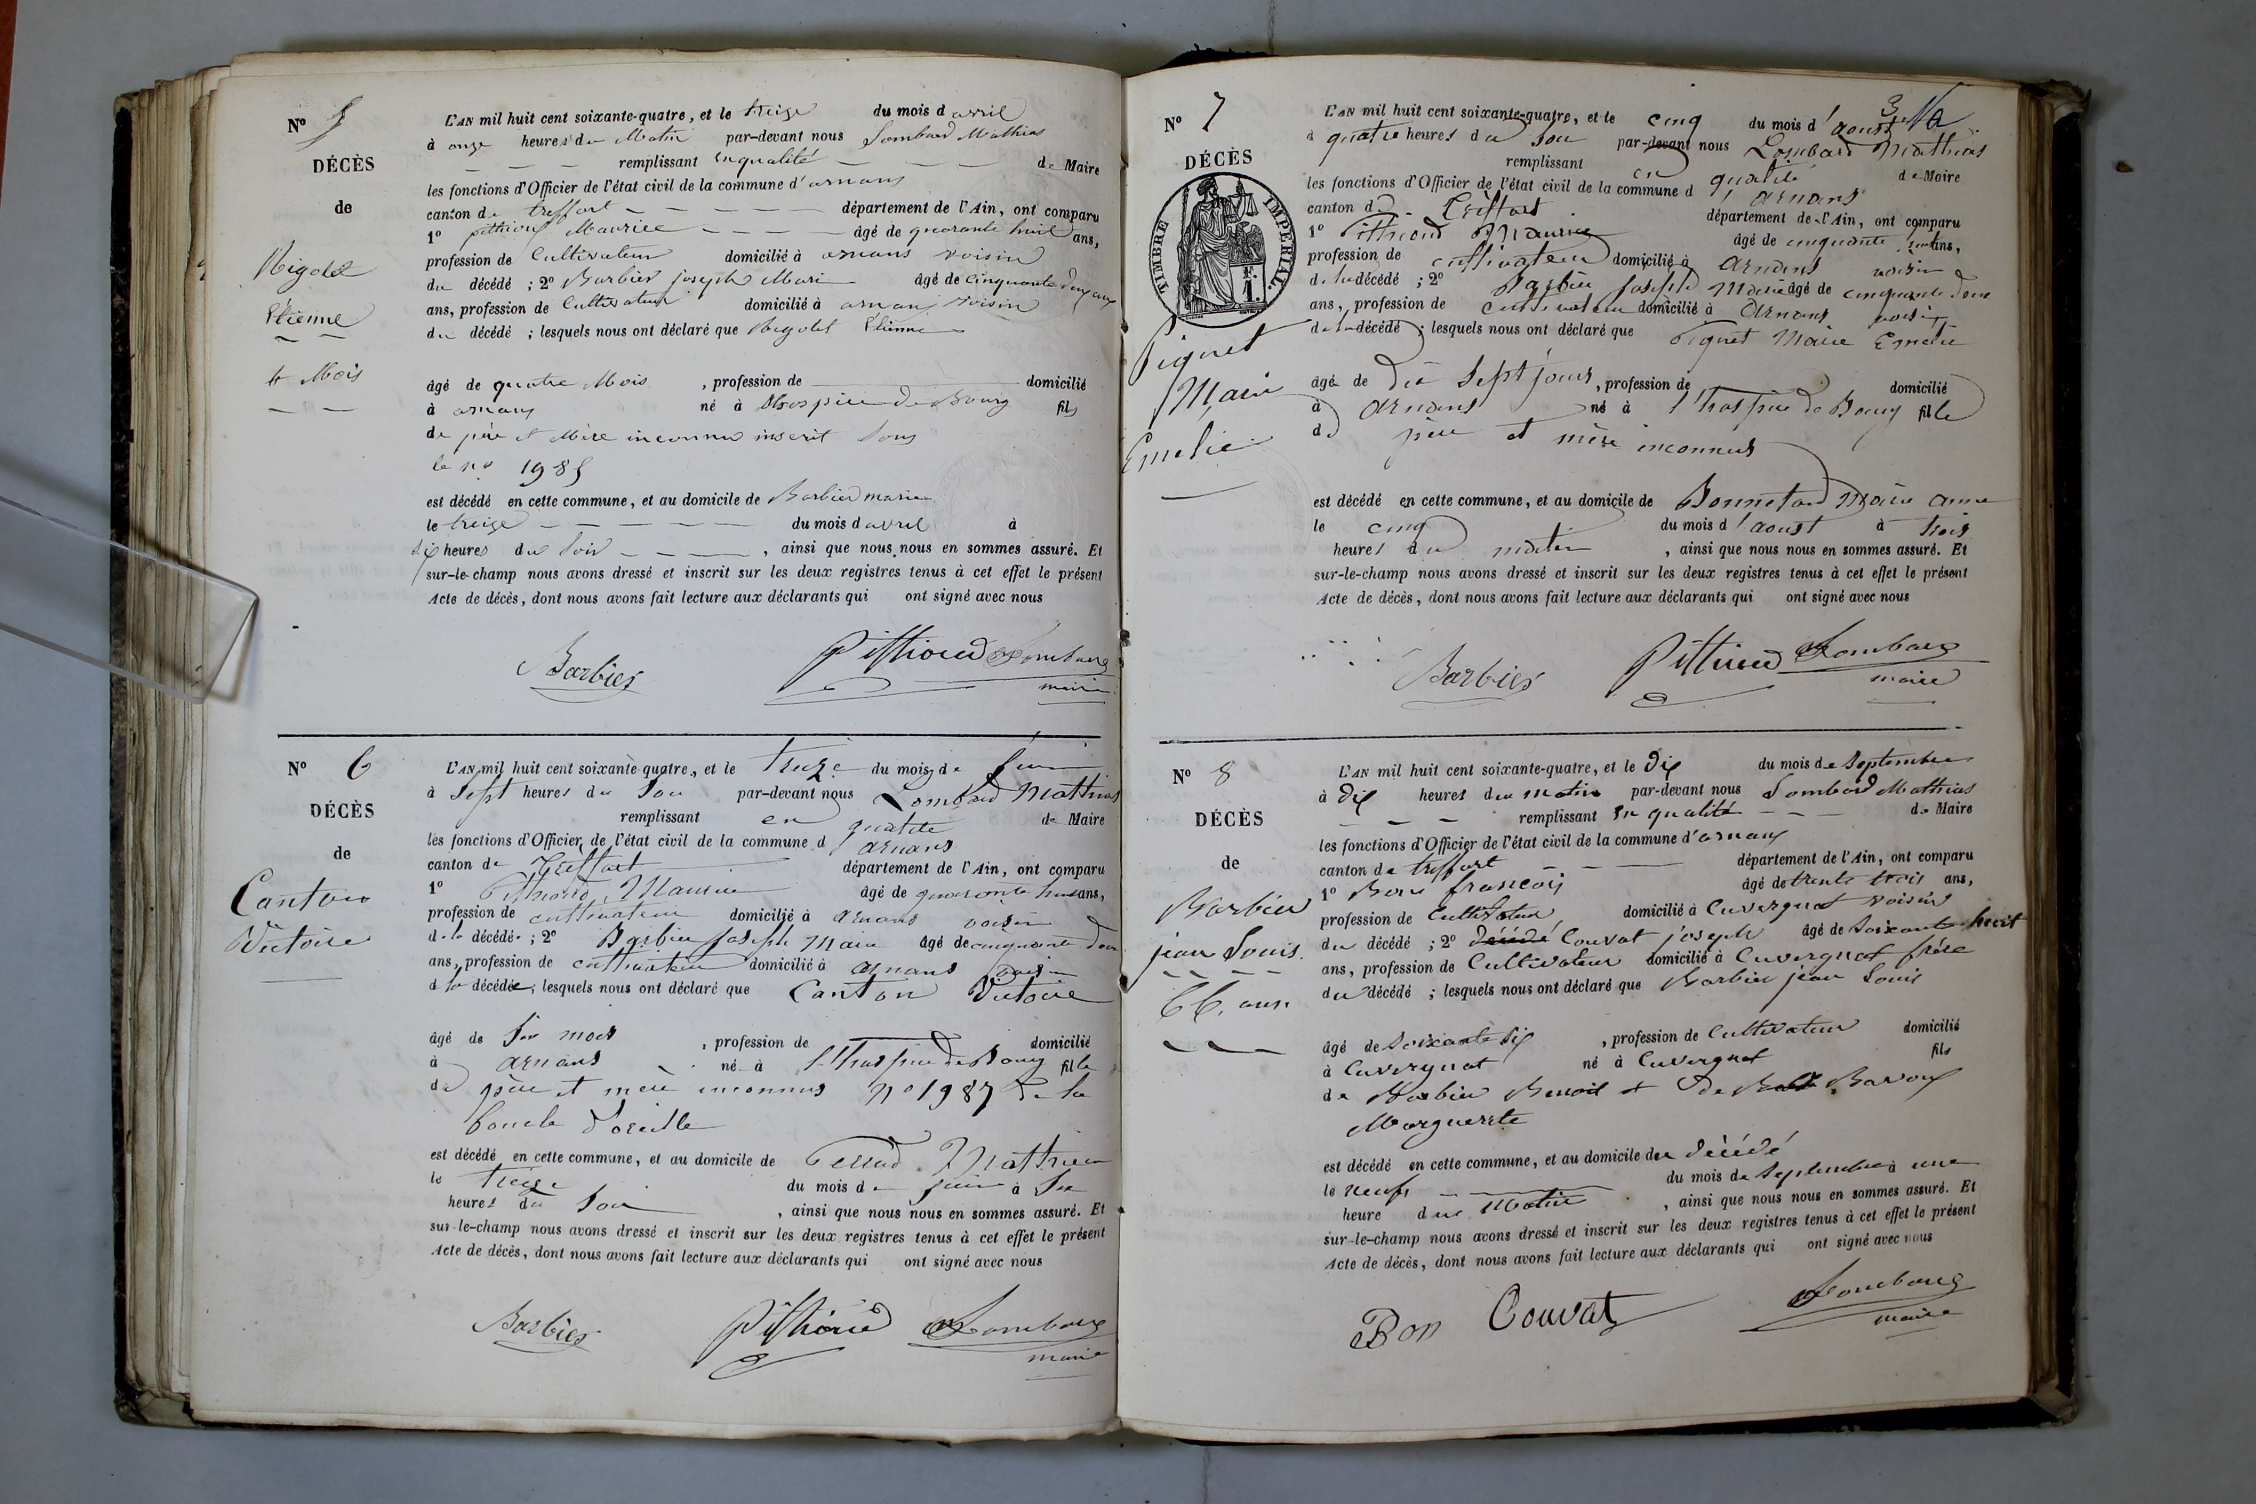 N° 5
DÉCÈS
de
Rigolet
Étienne
4 Mois
L'AN mil huit cent soixante-quatre, et le treize du mois d avril
à onze heures du Matin par-devant nous Lombard Mathias
remplissant en qualité de Maire
les fonctions d'Officier de l'état civil de la commune d'arnans
canton de treffort département de l'Ain, ont comparu
1° pithioud Maurice âgé de quarante huit ans,
profession de Cultivateur domicilié à arnans voisin
du décédé ; 2° Barbier joseph Marie âgé de cinquante deux ans
ans, profession de Cultivateur domicilié à arnans voisin
du décédé ; lesquels nous ont déclaré que Rigolet Étienne
âgé de quatre Mois , profession de domicilié
à arnans né à l'hospice de Bourg fils
de père et Mère inconnus inscrit sous
le no 1985
est décédé en cette commune, et au domicile de Barbier marie
le treize du mois d avril à
six heures du soir , ainsi que nous nous en sommes assuré. Et
sur-le-champ nous avons dressé et inscrit sur les deux registres tenus à cet effet le présent
Acte de décès, dont nous avons fait lecture aux déclarants qui ont signé avec nous
Barbier Pithioud Lombard
maire
N° 6
DÉCÈS
de
Canton
Victoire
L'AN mil huit cent soixante-quatre, et le treize du mois de juin
à Sept heures du Soir par-devant nous Lombard Mathias
remplissant en qualité de Maire
les fonctions d'Officier de l'état civil de la commune d arnans
canton de Treffort département de l'Ain, ont comparu
1° Pithioud Maurice âgé de quarante huit ans,
profession de cultivateur domicilié à arnans voisin
de la décédée ; 2° Barbier Joseph Marie âgé de cinquante deux
ans, profession de cultivateur domicilié à arnans voisin
d la décédée ; lesquels nous ont déclaré que Canton Victoire
âgé de Six mois , profession de domicilié
à arnans né à l'hospice de Bourg fille
de père et mère inconnus no 1987 de la
boucle d'oreille
est décédé en cette commune, et au domicile de Perrud Mathieu
le treize du mois de juin à Six
heures du Soir , ainsi que nous nous en sommes assuré. Et
sur-le-champ nous avons dressé et inscrit sur les deux registres tenus à cet effet le présent
Acte de décès, dont nous avons fait lecture aux déclarants qui ont signé avec nous
Barbier Pithioud Lombard
maire
3
N° 7
DÉCÈS
TIMBRE IMPÉRIAL.
1 F.
Piquet
Marie
Emelie
L'AN mil huit cent soixante-quatre, et le cinq du mois d'aoust
à quatre heures du Soir par-devant nous Lombard Mathias
remplissant en qualité de Maire
les fonctions d'Officier de l'état civil de la commune d arnans
canton de Treffort département de l'Ain, ont comparu
1° Pithioud Maurice âgé de cinquante ans,
profession de cultivateur domicilié à arnans voisin
de la décédé ; 2° Barbier Joseph Marie âgé de cinquante deux
ans, profession de cultivateur domicilié à arnans voisin
de la décédé ; lesquels nous ont déclaré que Piquet Marie Emelie
âgé de dix Sept jours , profession de domicilié
à arnans né à l'hospice de Bourg fille
de père et mère inconnus
est décédé en cette commune, et au domicile de Bonnetard Marie anne
le cinq du mois d'aoust à trois
heures du matin , ainsi que nous nous en sommes assuré. Et
sur-le-champ nous avons dressé et inscrit sur les deux registres tenus à cet effet le présent
Acte de décès, dont nous avons fait lecture aux déclarants qui ont signé avec nous
Barbier Pithioud Lombard
maire
N° 8
DÉCÈS
de
Barbier
jean Louis.
66. ans.
L'AN mil huit cent soixante-quatre, et le dix du mois de Septembre
à dix heures du matin par-devant nous Lombard Mathias
remplissant en qualité de Maire
les fonctions d'Officier de l'état civil de la commune d'arnans
canton de treffort département de l'Ain, ont comparu
1° françois âgé de trente trois ans,
profession de Cultivateur domicilié à Cuvergnat voisin
du décédé ; 2° décédé Couvat joseph âgé de soixante huit
ans, profession de Cultivateur domicilié à Cuvergnat frère
du décédé ; lesquels nous ont déclaré que Barbier jean Louis
âgé de soixante six , profession de Cultivateur domicilié
à Cuvergnat né à Cuvergnat fils
de Barbier Benoit et de Bavoux
Marguerite
est décédé en cette commune, et au domicile du décédé
le neuf du mois de septembre à une
heure du Matin , ainsi que nous nous en sommes assuré. Et
sur-le-champ nous avons dressé et inscrit sur les deux registres tenus à cet effet le présent
Acte de décès, dont nous avons fait lecture aux déclarants qui ont signé avec nous
Bon Couvat Lombard
maire